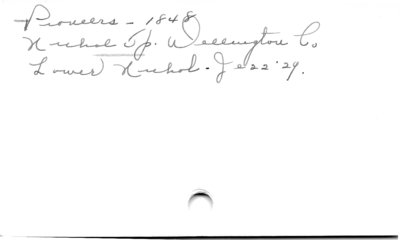 Pioneers - 1848
Nichol Tp. Wellington Co
Lower Nichol - Je 22 '29.